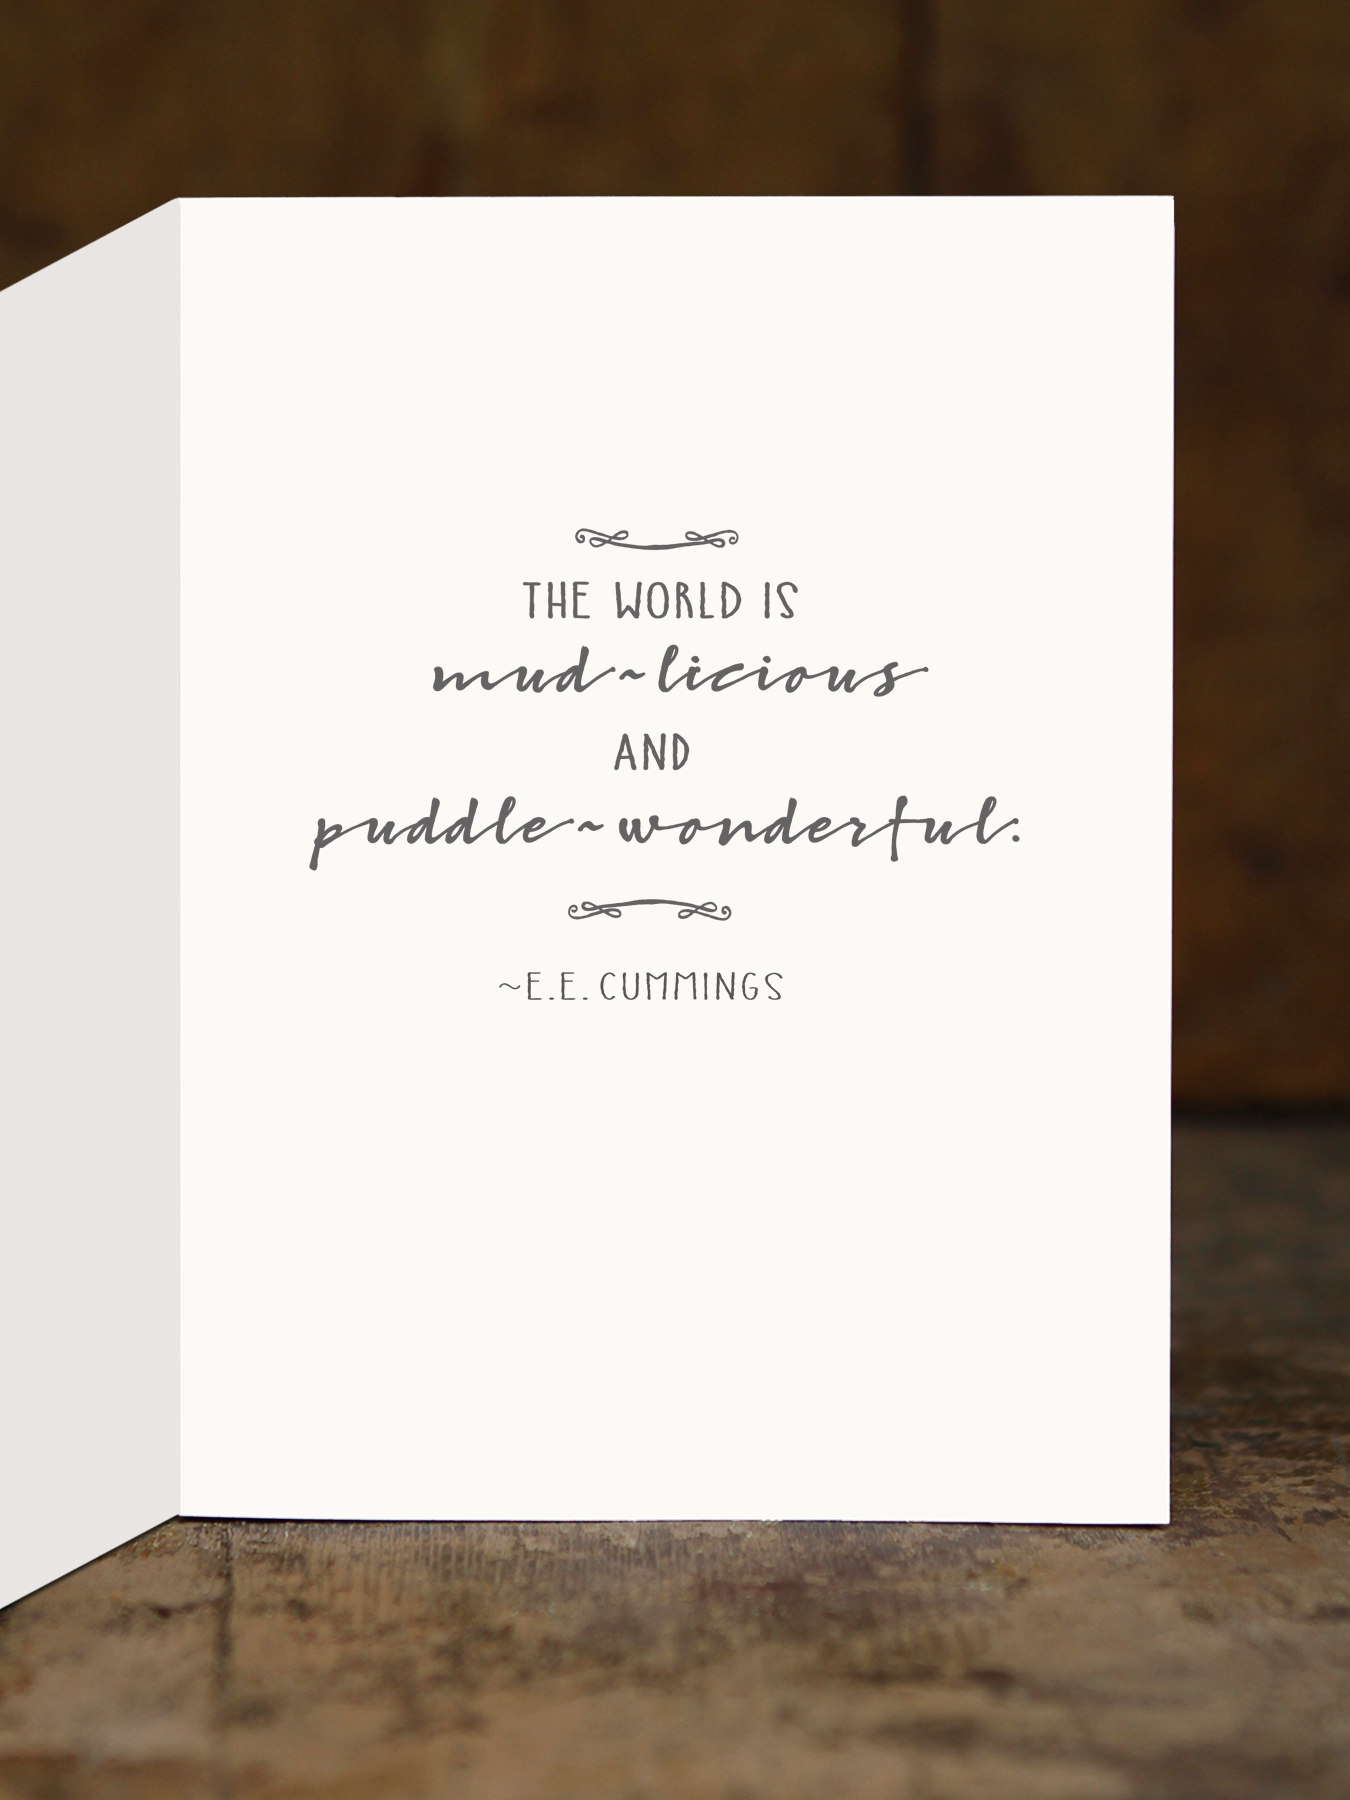 THE WORLD IS
mud~licious
AND
puddle~wonderful.
~E.E. CUMMINGS